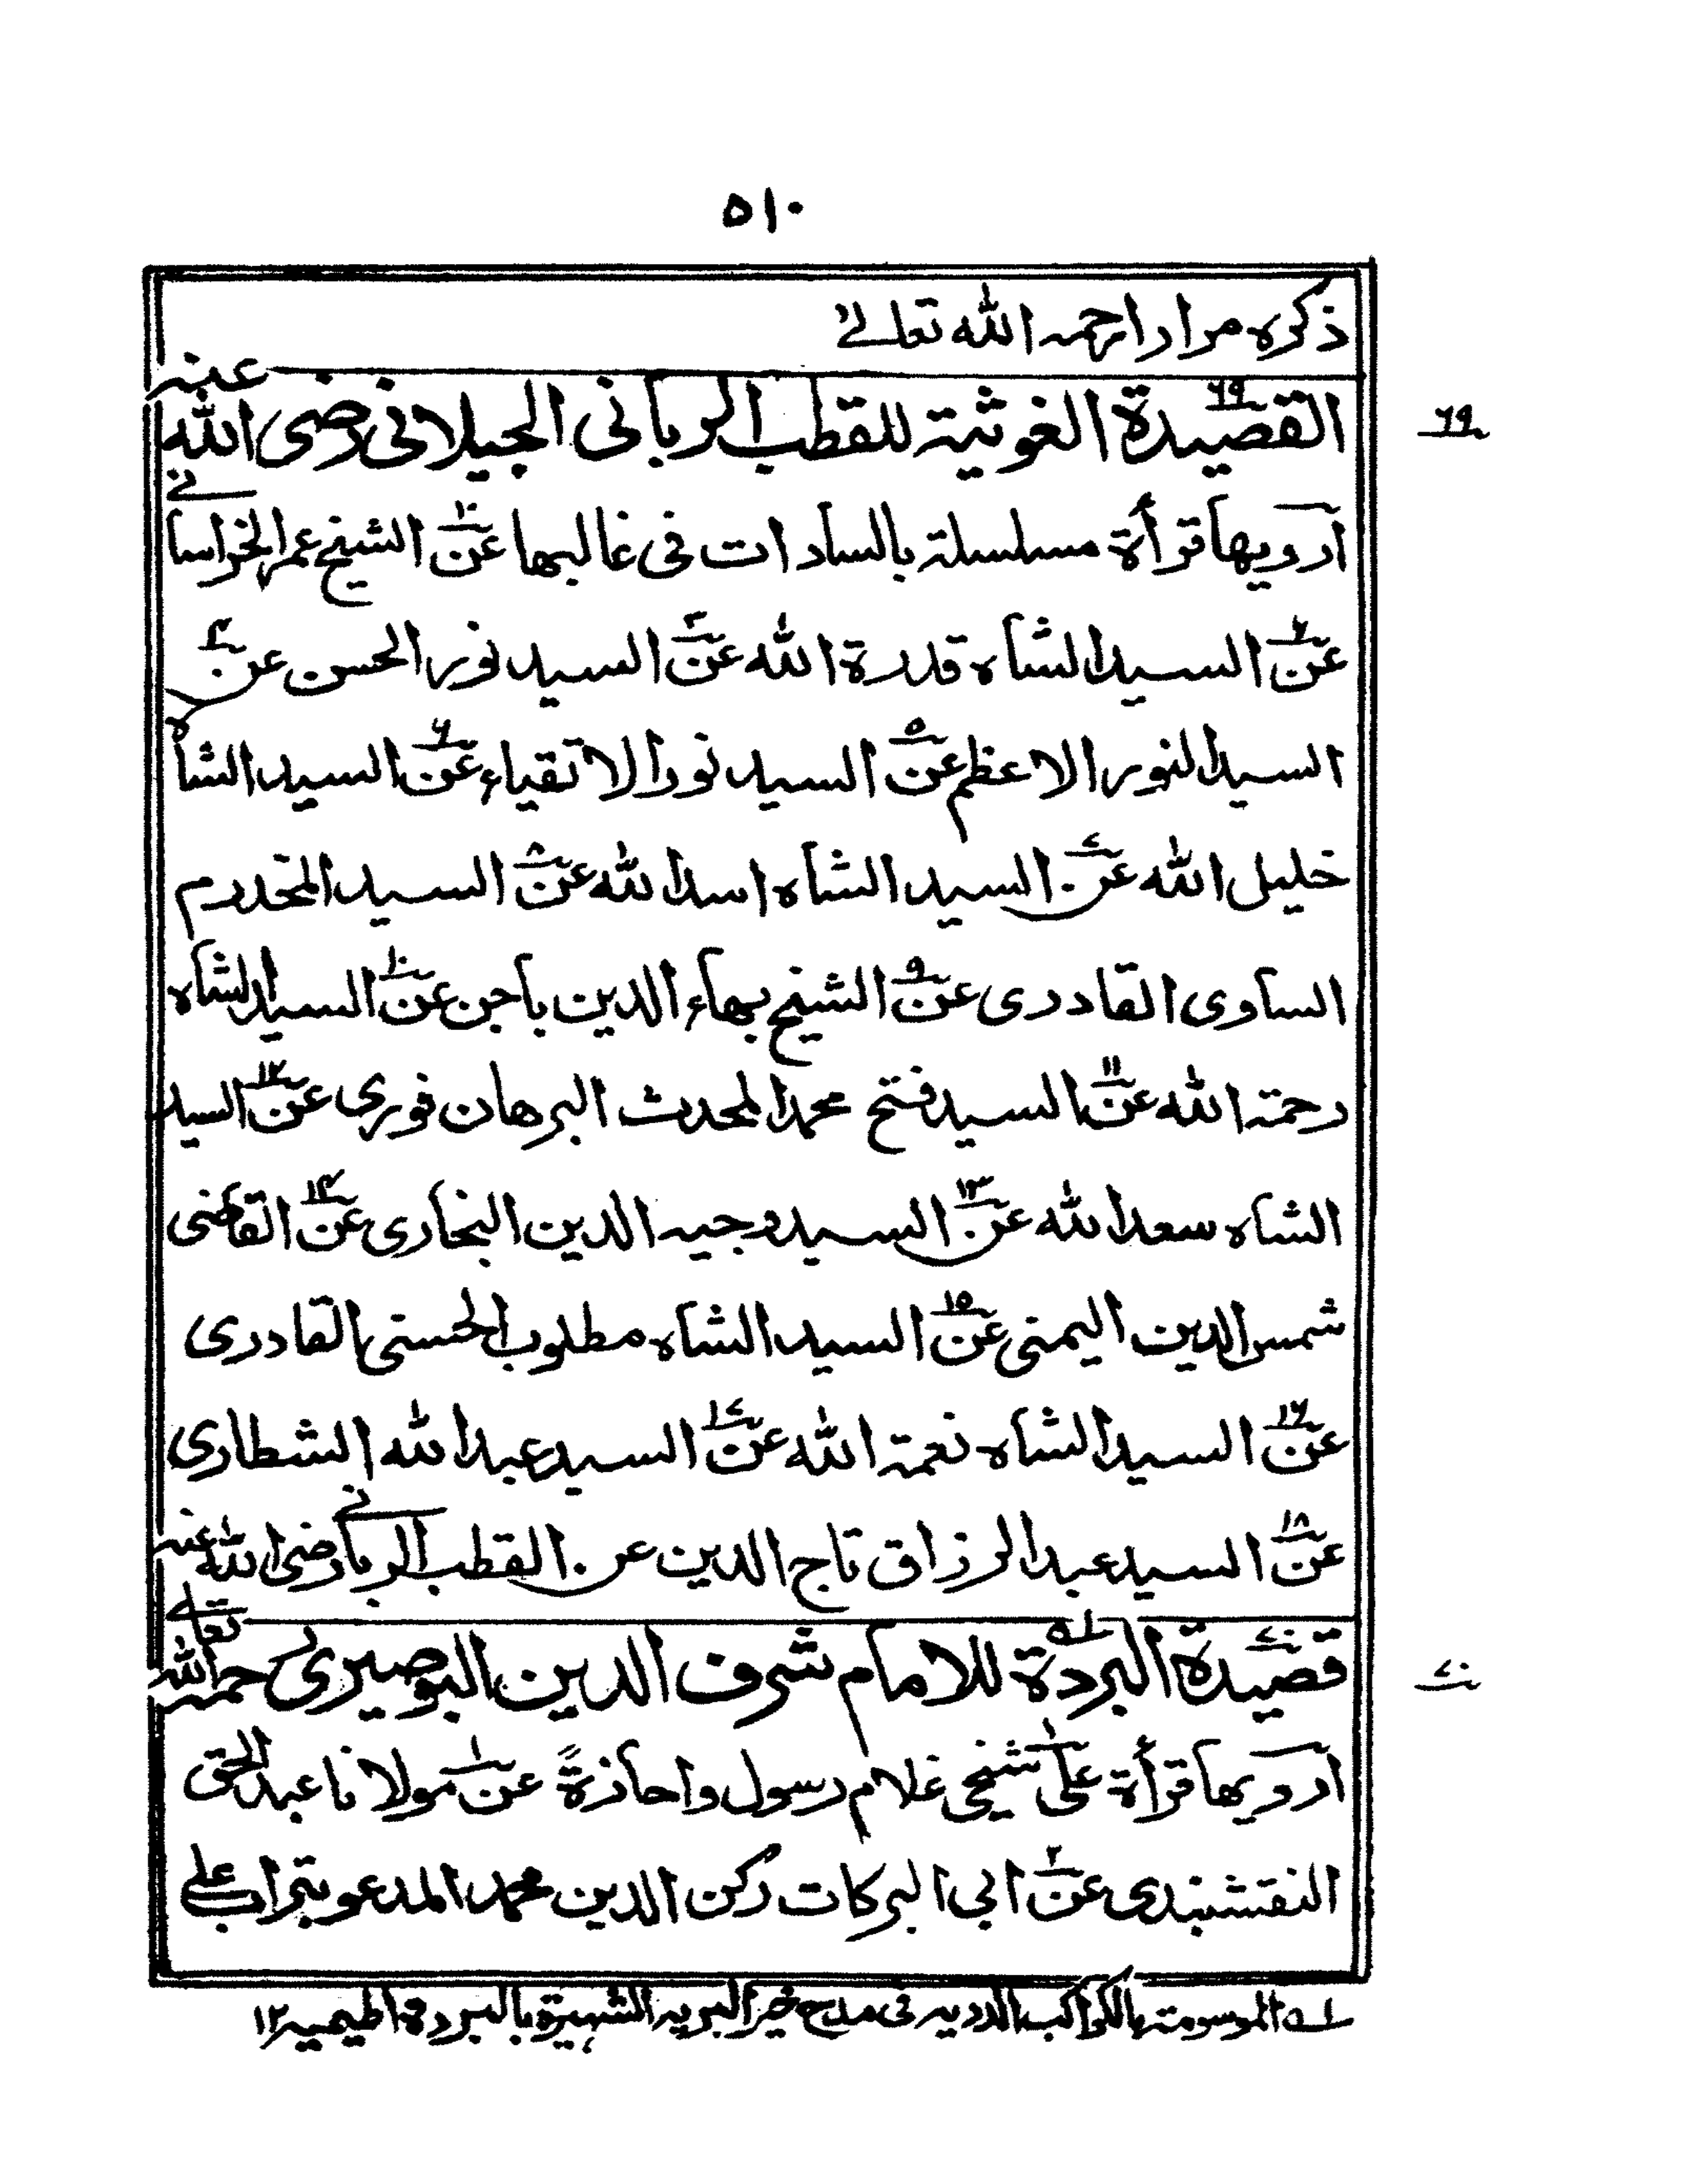 ٥١٠
ذكره مرارا رحمه الله تعالے
القصيدة الغوثية للقطب الربانى الجيلانى رضى الله عنه
٦٩
ارويها قرأة مسلسلة بالسادات فى غالبها عن الشيخ عمر الخراسانے
عن السيد الشاه قدرة الله عن السيد نور الحسن عن
السيد النور الاعظم عن السيد نور الاتقياء عن السيد الشاه
خليل الله عن السيد الشاه اسد الله عن السيد المخدوم
الساوى القادرى عن الشيخ بهاء الدين باجن عن السيد الشاه
رحمة الله عن السيد فتح محمد المحدث البرهان فورى عن السيد
الشاه سعد الله عن السيد وجيه الدين البخارى عن القاضى
شمس الدين اليمنى عن السيد الشاه مطلوب الحسنى القادرى
عن السيد الشاه نعمة الله عن السيد عبد الله الشطارى
عن السيد عبد الرزاق تاج الدين عن القطب الربانے رضى الله عنه
قصيدة البردة للامام شرف الدين البوصيرى رحمه الله تعالے
٧٠
ارويها قرأة على شيخى غلام رسول واجازةً عن مولانا عبد الحق
النقشبندى عن ابى البركات ركن الدين محمد المدعو بتراب علے
لـه الموسومة بالكواكب الدرديه فى مدح خير البريه الشهيرة بالبردة الميميه ١٢